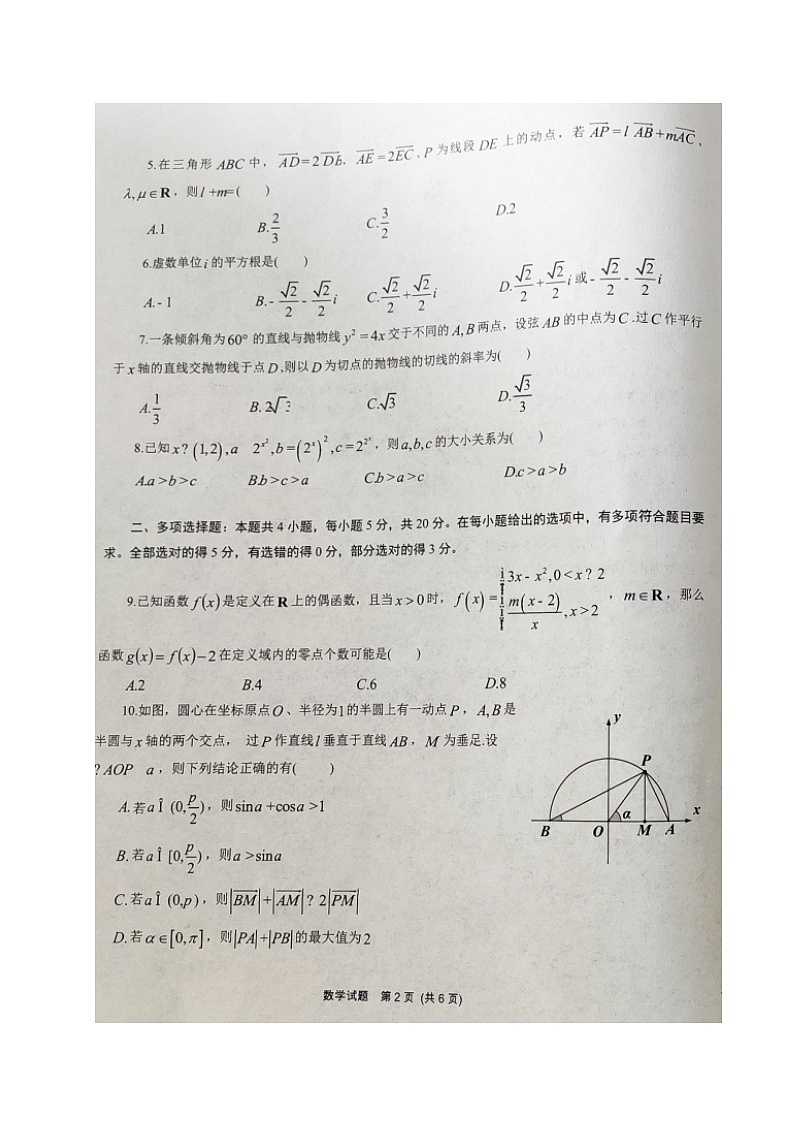 5.在三角形 ABC 中， AD = 2 DB， AE = 2EC , P 为线段 DE 上的动点，若 AP = l AB + mAC ，
λ, μ ∈ R ，则 l +m= ( )
A.1 B. 2/3 C. 3/2 D.2
6.虚数单位 i 的平方根是( )
A.- 1 B.- √2/2 - √2/2 i C. √2/2 + √2/2 i D. √2/2 + √2/2 i 或 - √2/2 - √2/2 i
7.一条倾斜角为 60° 的直线与抛物线 y² = 4x 交于不同的 A, B 两点，设弦 AB 的中点为 C .过 C 作平行
于 x 轴的直线交抛物线于点 D ,则以 D 为切点的抛物线的切线的斜率为( )
A. 1/3 B. 2√3 C. √3 D. √3/3
8.已知 x ? (1,2) , a 2^(x²) , b = (2^x)² , c = 2^(2^x) ，则 a,b,c 的大小关系为( )
A.a > b > c B.b > c > a C.b > a > c D.c > a > b
二、多项选择题：本题共 4 小题，每小题 5 分，共 20 分。在每小题给出的选项中，有多项符合题目要
求。全部选对的得 5 分，有选错的得 0 分，部分选对的得 3 分。
9.已知函数 f(x) 是定义在 R 上的偶函数，且当 x > 0 时， f(x) = { 3x - x², 0 < x ? 2 ; m(x - 2)/x , x > 2 ， m ∈ R ，那么
函数 g(x) = f(x) − 2 在定义域内的零点个数可能是( )
A.2 B.4 C.6 D.8
10.如图，圆心在坐标原点 O 、半径为 1 的半圆上有一动点 P ， A, B 是
半圆与 x 轴的两个交点， 过 P 作直线 l 垂直于直线 AB ， M 为垂足.设
? AOP a ，则下列结论正确的有( )
A. 若 a Î (0, p/2) ，则 sin a + cos a > 1
B. 若 a Î [0, p/2) ，则 a > sin a
C. 若 a Î (0, p) ，则 |BM| + |AM| ? 2 |PM|
D. 若 α ∈ [0, π] ，则 |PA| + |PB| 的最大值为 2
y
P
α
x
B O M A
数学试题 第 2 页 (共 6 页)